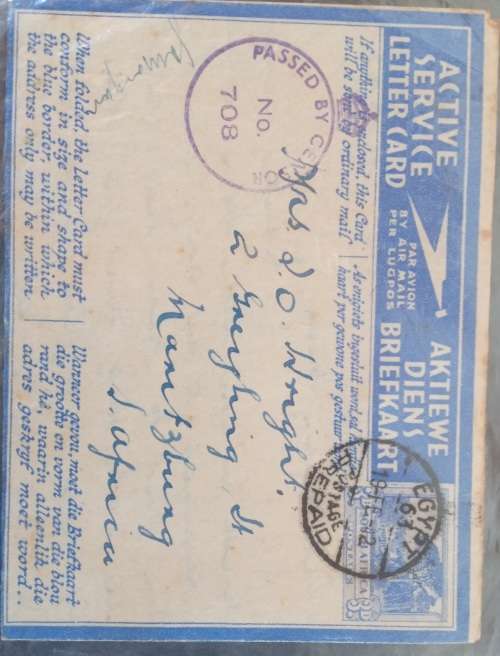 ACTIVE
SERVICE
LETTER CARD
PAR AVION
BY AIR MAIL
PER LUGPOS
AKTIEWE
DIENS
BRIEFKAART
If anything is enclosed, this Card
will be sent by ordinary mail
As enigiets ingesluit word, sal
kaart per gewone pos gestuur
EGYPT
63
POSTAGE
PREPAID
PASSED BY CENSOR
No.
708
Mrs. J. O. Wright.
2 Greyling St
Maritzburg
S. Africa
When folded, the Letter Card must
conform in size and shape to
the blue border, within which
the address only may be written
Wanneer gevou, moet die Briefkaart
die grootte en vorm van die blou
rand hê, waarin alleenlik die
adres geskryf moet word..